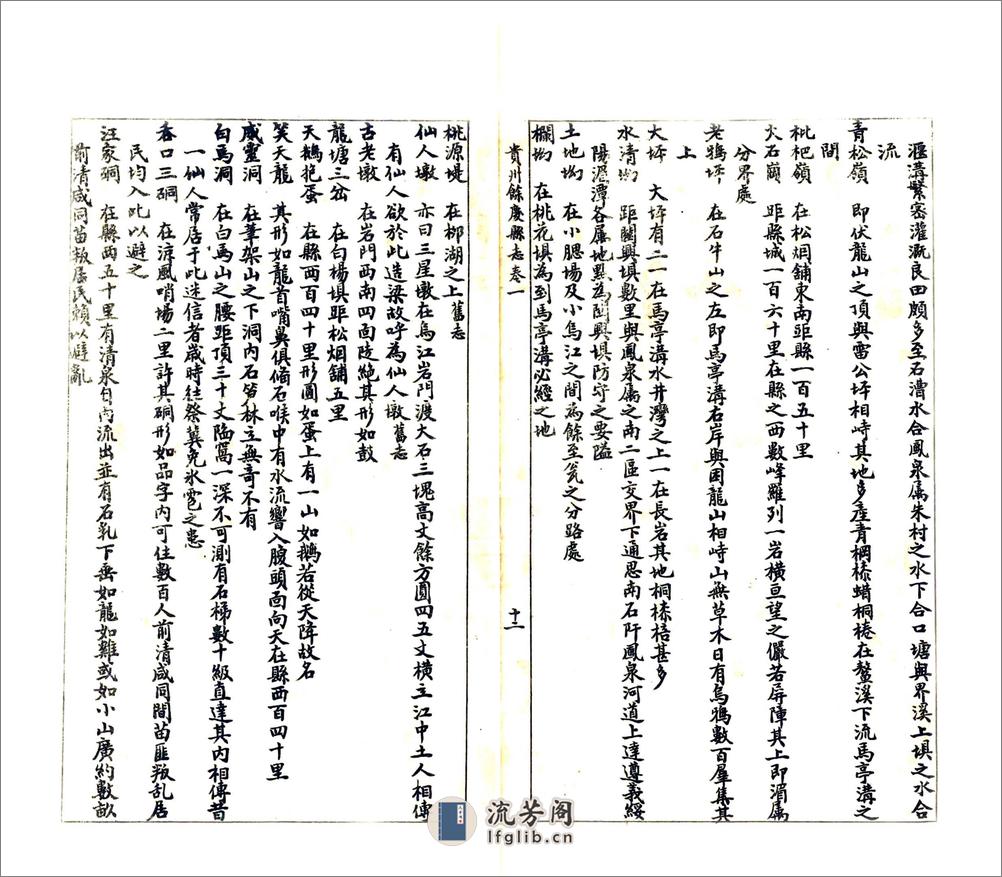 滙溝縈塞灌漑良田頗多至石漕水合鳳泉属朱村之水下合口塘與界溪上壩之水合
流
青松嶺　即伏龍山之頂與雷公坪相峙其地多產青棡漆蜡桐棬在鰲溪下流馬亭溝之
間
枇杷嶺　在松烟鋪東南距縣一百五十里
火石崗　距縣城一百六十里在縣之西數峰羅列一岩橫亘望之儼若屏障其上即湄属
分界處
老鴉坪　在石牛山之左即馬亭溝右岸與困龍山相峙山無草木日有烏鴉數百羣集其
上
大坪　大坪有二一在馬亭溝水井灣之上一在長岩其地桐漆棓甚多
水清坳　距關興壩數里與鳳泉属之南二區交界下通思南石阡鳳泉河道上達遵義綏
陽湄潭各属地點為關興壩防守之要隘
土地坳　在小腮場及小烏江之間為餘至瓮之分路處
欄坳　在桃花壩為到馬亭溝必經之地
貴州餘慶縣志卷一
十二
桃源堤　在柳湖之上舊志
仙人墩　亦曰三星墩在烏江岩門渡大石三塊高丈餘方圓四五丈橫立江中土人相傳
有仙人欲於此造梁故呼為仙人墩舊志
古老墩　在岩門西南四面陡絶其形如鼓
龍塘三岔　在白楊壩距松烟舖五里
天鵝抱蛋　在縣西百四十里形圓如蛋上有一山如鵝若從天降故名
笑天龍　其形如龍首嘴鼻俱備石喉中有水流響入腹頭面向天在縣西百四十里
威靈洞　在筆架山之下洞内石筍林立無奇不有
白馬洞　在白馬山之腰距頂三十丈陷窩一深不可測有石梯數十級直達其内相傳昔
一仙人常居于此迷信者歲時往祭冀免氷雹之患
吞口三硐　在涼風哨場二里許其硐形如品字内可住數百人前清咸同間苗匪叛乱居
民均入此以避之
汪家硐　在縣西五十里有清泉自内流出並有石乳下垂如龍如雞或如小山廣約數畝
前清咸同苗叛居民賴以避亂
流芳阁
lfglib.cn